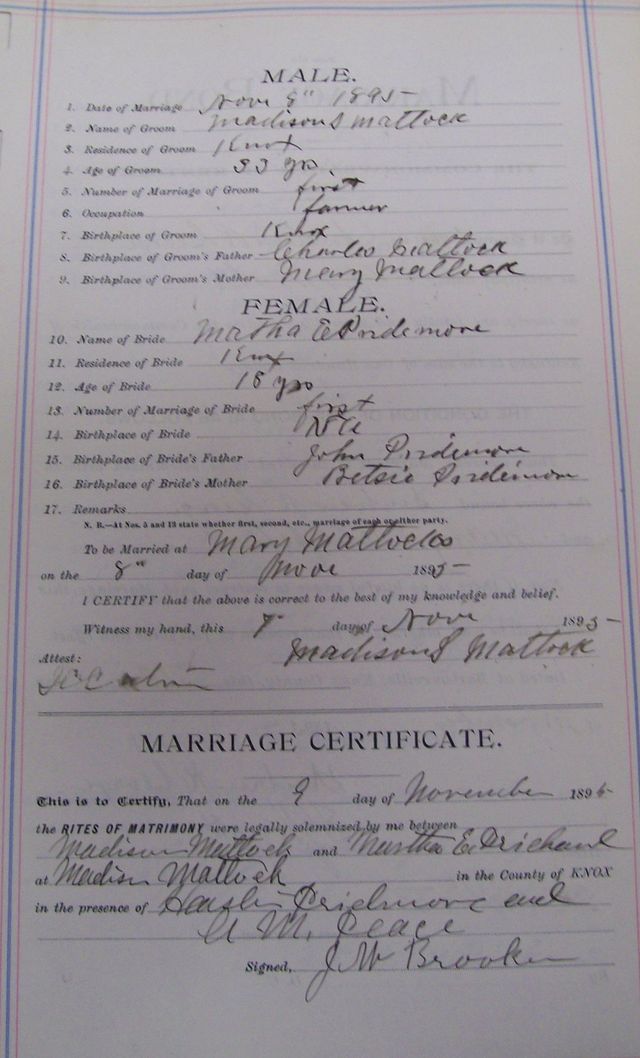 MALE.
1. Date of Marriage Nove 8" 1895
2. Name of Groom Madison S Mattock
3. Residence of Groom Knox
4. Age of Groom 33 yrs.
5. Number of Marriage of Groom first
6. Occupation farmer
7. Birthplace of Groom Knox
8. Birthplace of Groom's Father Charles Mattock
9. Birthplace of Groom's Mother Mary Mattock
FEMALE.
10. Name of Bride Matha E Pridemore
11. Residence of Bride Knox
12. Age of Bride 18 yrs
13. Number of Marriage of Bride first
14. Birthplace of Bride
15. Birthplace of Bride's Father John Pridemore
16. Birthplace of Bride's Mother Betsie Pridemore
17. Remarks
N. B.—At Nos. 5 and 13 state whether first, second, etc., marriage of each or either party.
To be Married at Mary Mattocks
on the 8" day of Nove 1895
I CERTIFY that the above is correct to the best of my knowledge and belief.
Witness my hand, this 7" day of Nove 1895
Madison S Mattock
Attest:
MARRIAGE CERTIFICATE.
This is to Certify, That on the 9 day of November 1895
the RITES OF MATRIMONY were legally solemnized by me between
Madison Mattock and Martha E.
at Madison Mattock in the County of KNOX
in the presence of Pridmore and
M. Peace
Signed, J W Brooker